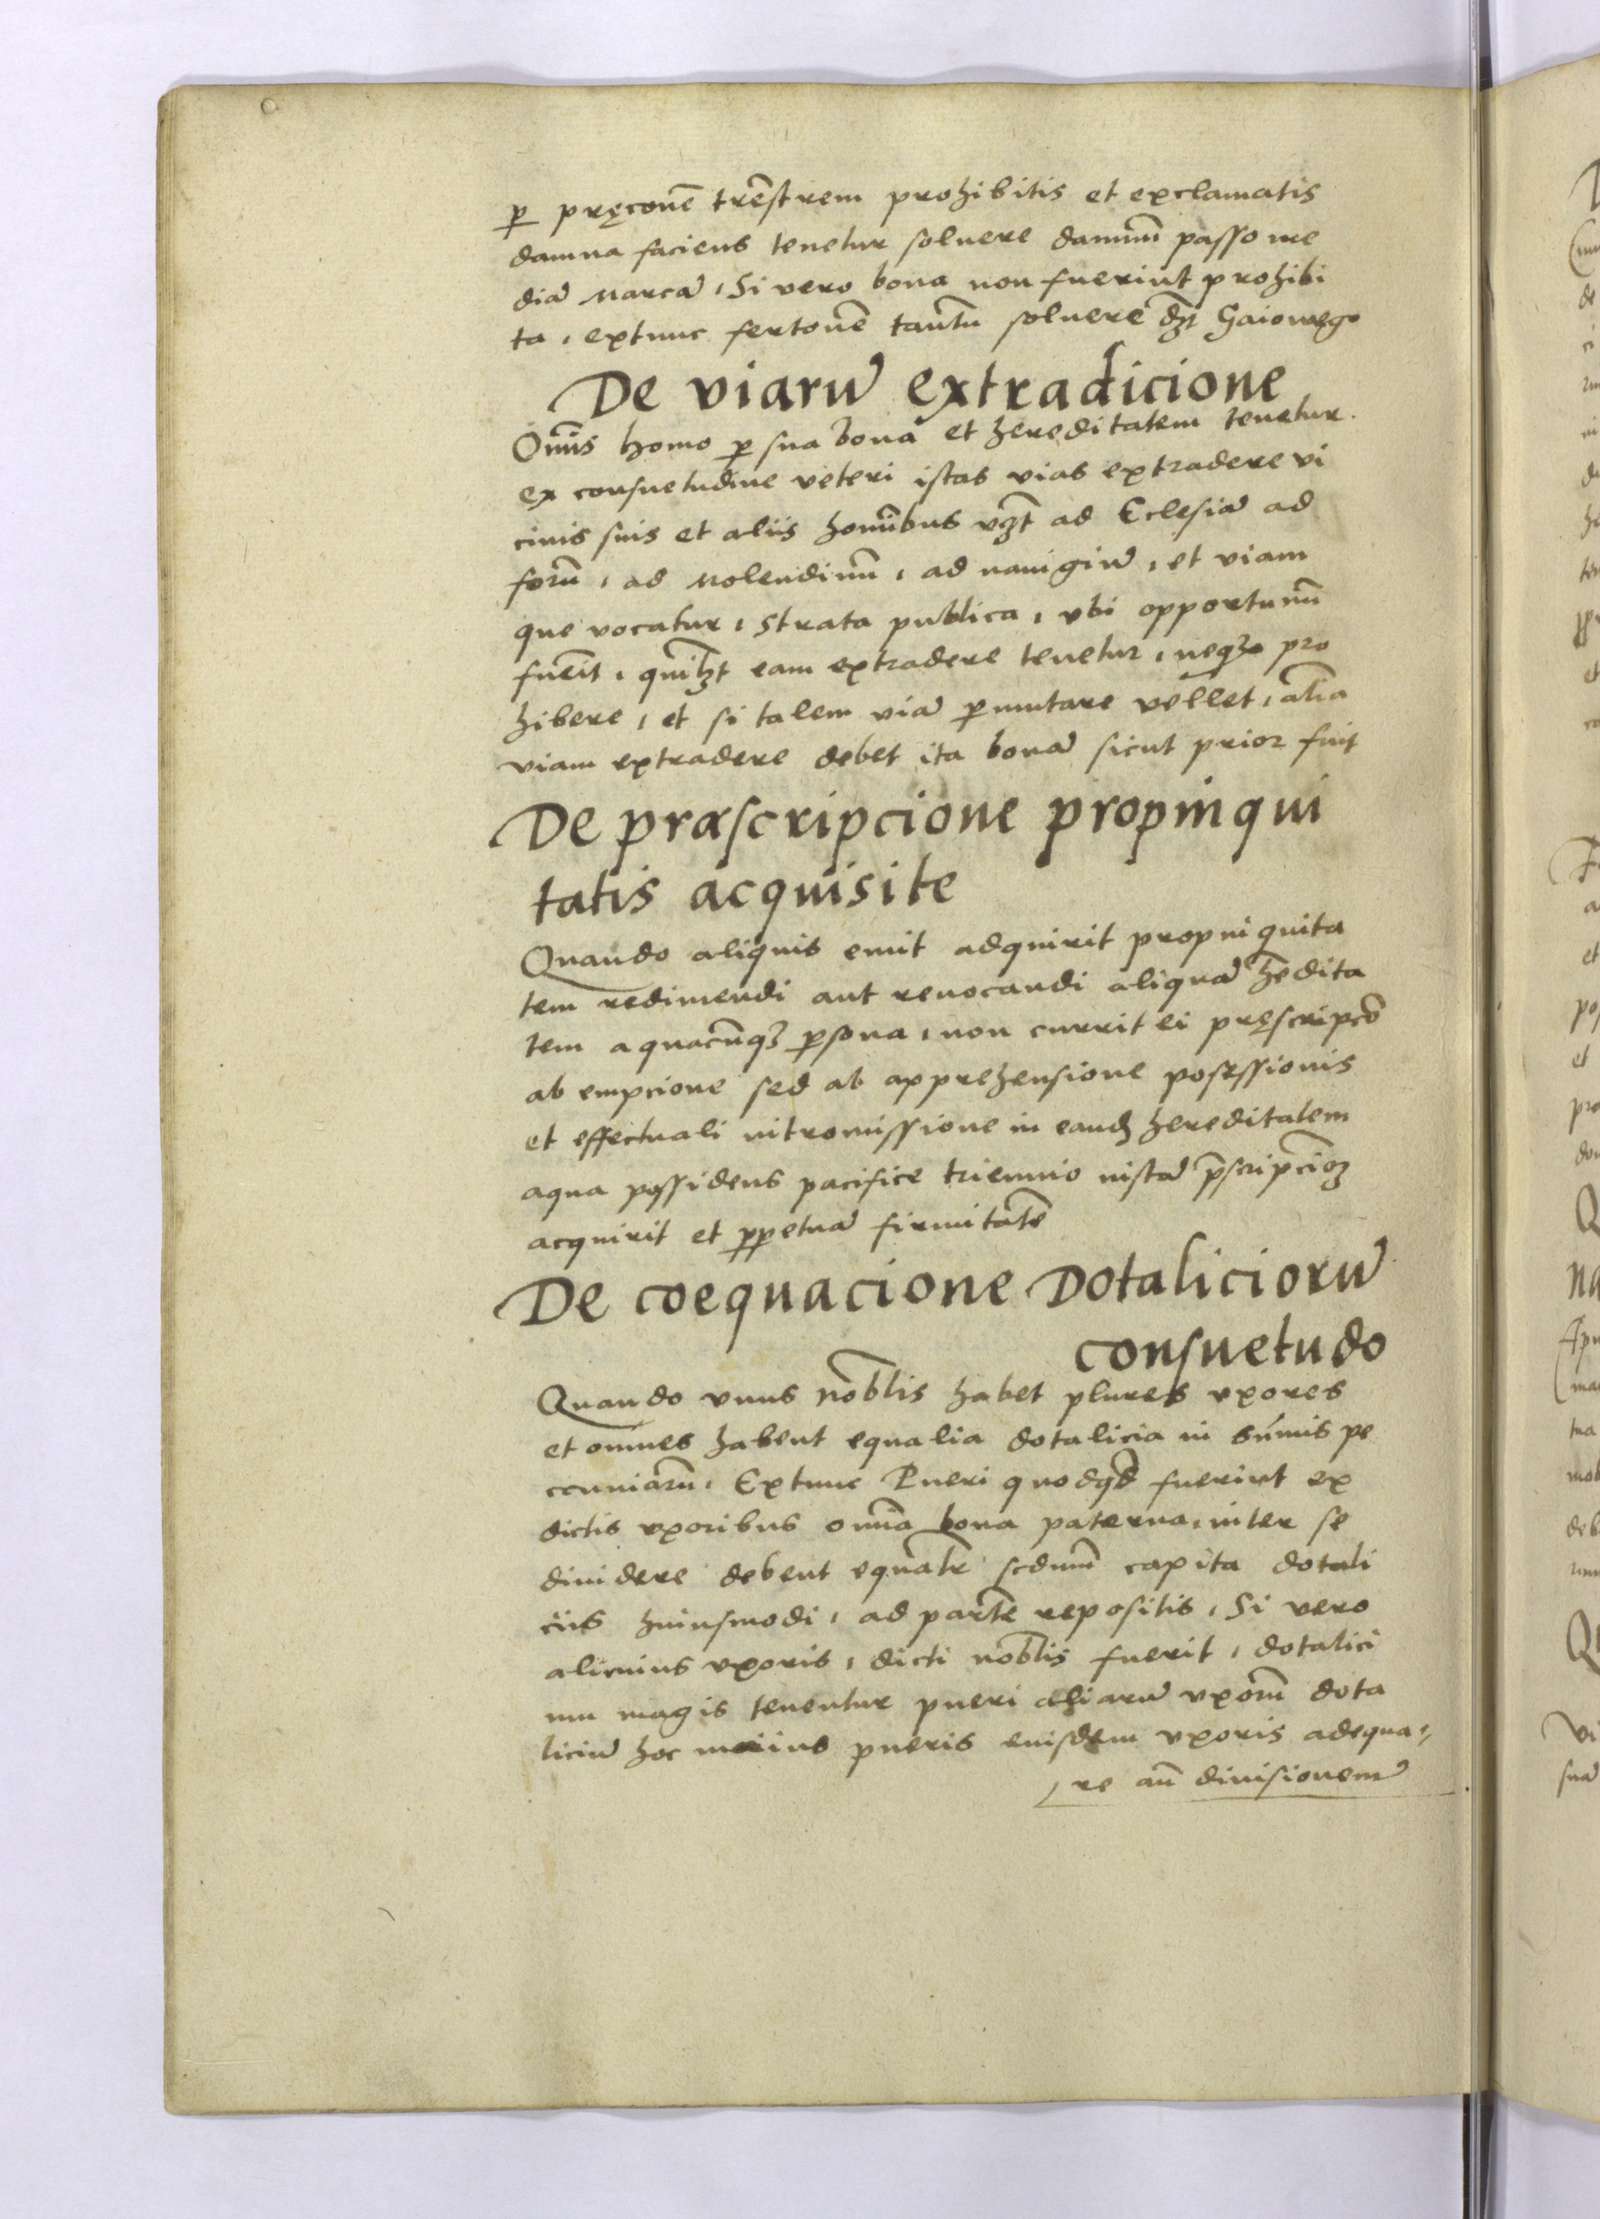 p̲ pręconē trēstrem prohibitis et exclamatis
damna faciens tenetur soluere damnū passo me
diā Marcā, Si vero bona non fuerint prohibi
ta, extunc fertonē tantū soluere dꝫt Gaiowego
De viarū extradicione
Oīnis homo p̲ sua bona et hereditatem tenetur
ex consuetudine veteri istas vias extradere vi
cinis suis et aliis hominībus vꝫt ad Eclesiā ad
forū, ad Molendinū, ad nauigiū, et viam
que vocatur, strata publica, vbi opportunū
fuerīt, quilꝫt eam extradere tenetur, neqꝫ pro
hibere, et si talem viā p̲mutare vellet, aliā
viam extradere debet ita bonā sicut prior fuit
De præscripcione propinqui
tatis acquisite
Quando aliquis emit adquirit propinquita
tem redimendi aut reuocandi aliquā hēdita
tem aquacūqꝫ p̲sona, non currit ei pręscripcō
ab empcione sed ab apprehensione posessionis
et effectuali intromissione in eandꝫ hereditatem
aqua possidens pacifice triennio iustā p̄scripcionꝫ
acquirit et p̲petuā firmitatē
De coequacione Dotaliciorū
consuetudo
Quando vnus nōblis habet plures vxores
et omnes habent equalia dotalicia in sūmis pe
ccuniarū, Extunc Pueri quodqd̄ fuerint ex
dictis vxoribus omīa bona paterna, inter se
diuidere debent equalr̄ scdum̄ capita dotali
ciis huiusmodi, ad partē repositis, Si vero
alicuius vxoris, dicti nōblis fuerit, dotalici
um magis tenentur pueri aliarū vxorū dota
liciū hoc maiius pueris euisdem vxoris adequa,
re an̄ diuisionem